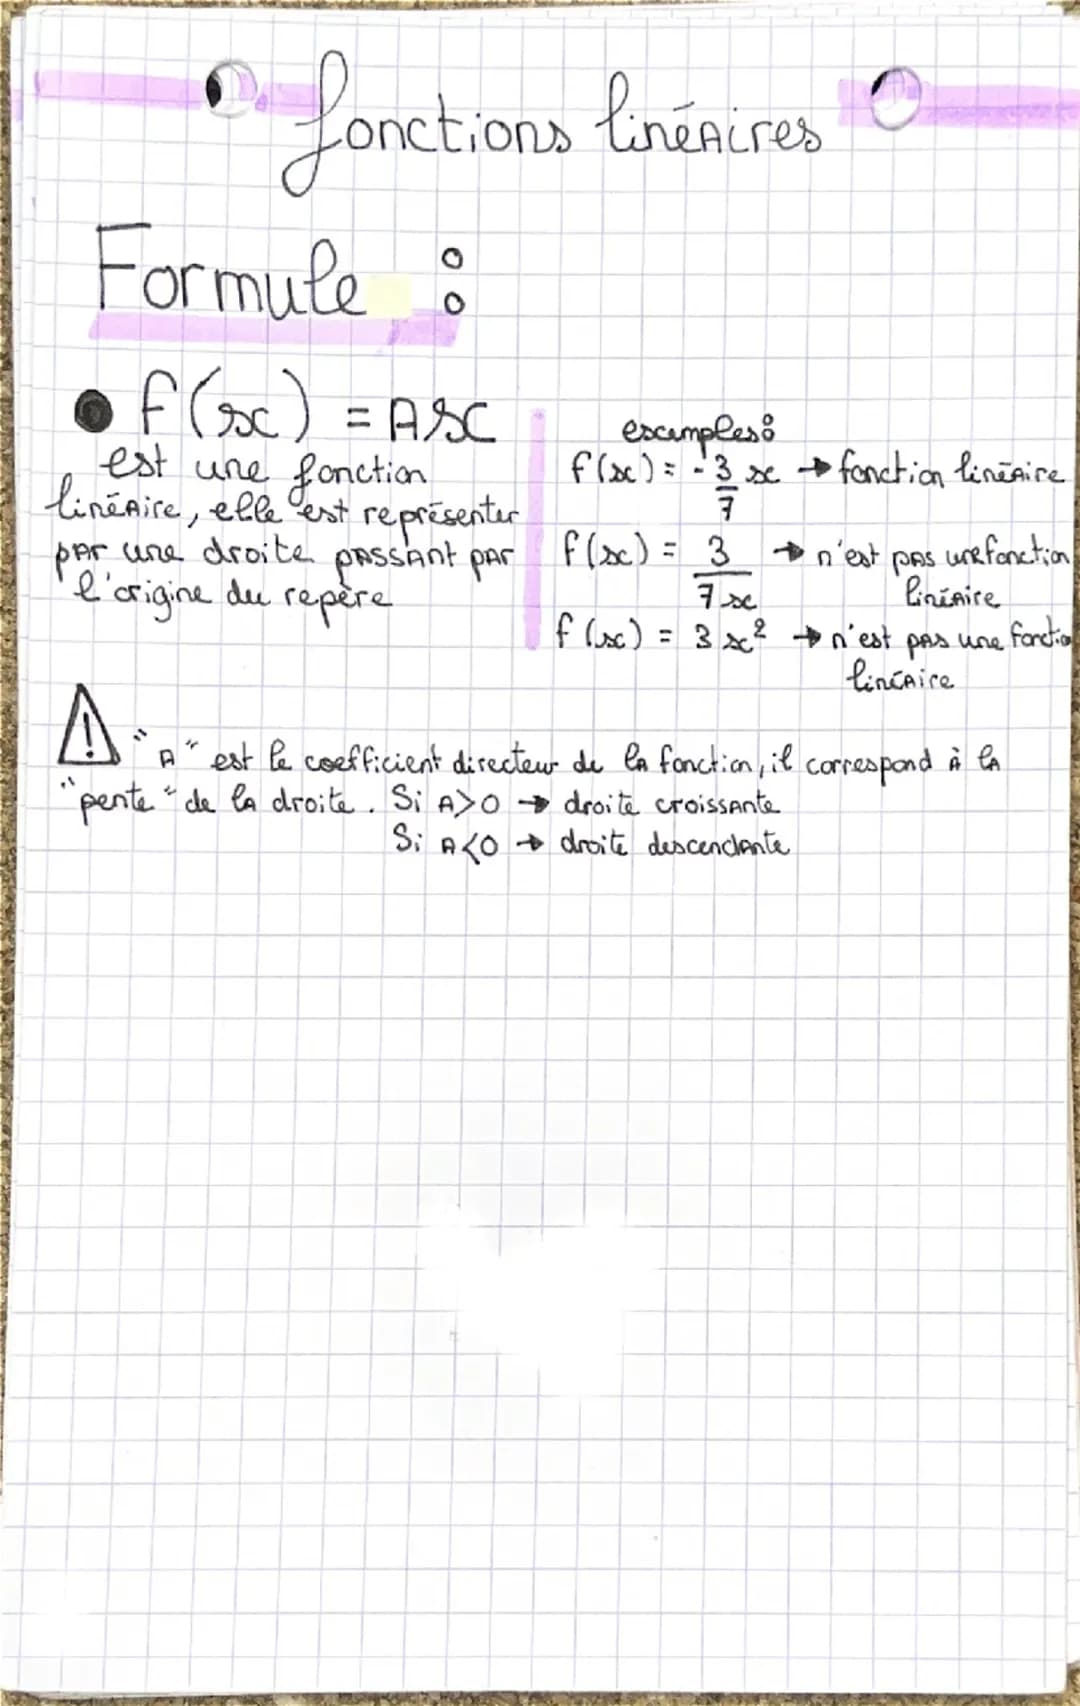 fonctions linéaires
Formule :
• f(x) = Ax
est une fonction
linéaire, elle est représenter
par une droite passant par
l'origine du repère
examples :
f(x) = -3/7 x → fonction linéaire
f(x) = 3/7x → n'est pas une fonction
linéaire
f(x) = 3x² → n'est pas une fonctio
linéaire
⚠ "A" est le coefficient directeur de la fonction, il correspond à la
"pente" de la droite. Si A>0 → droite croissante
Si A<0 → droite descendante